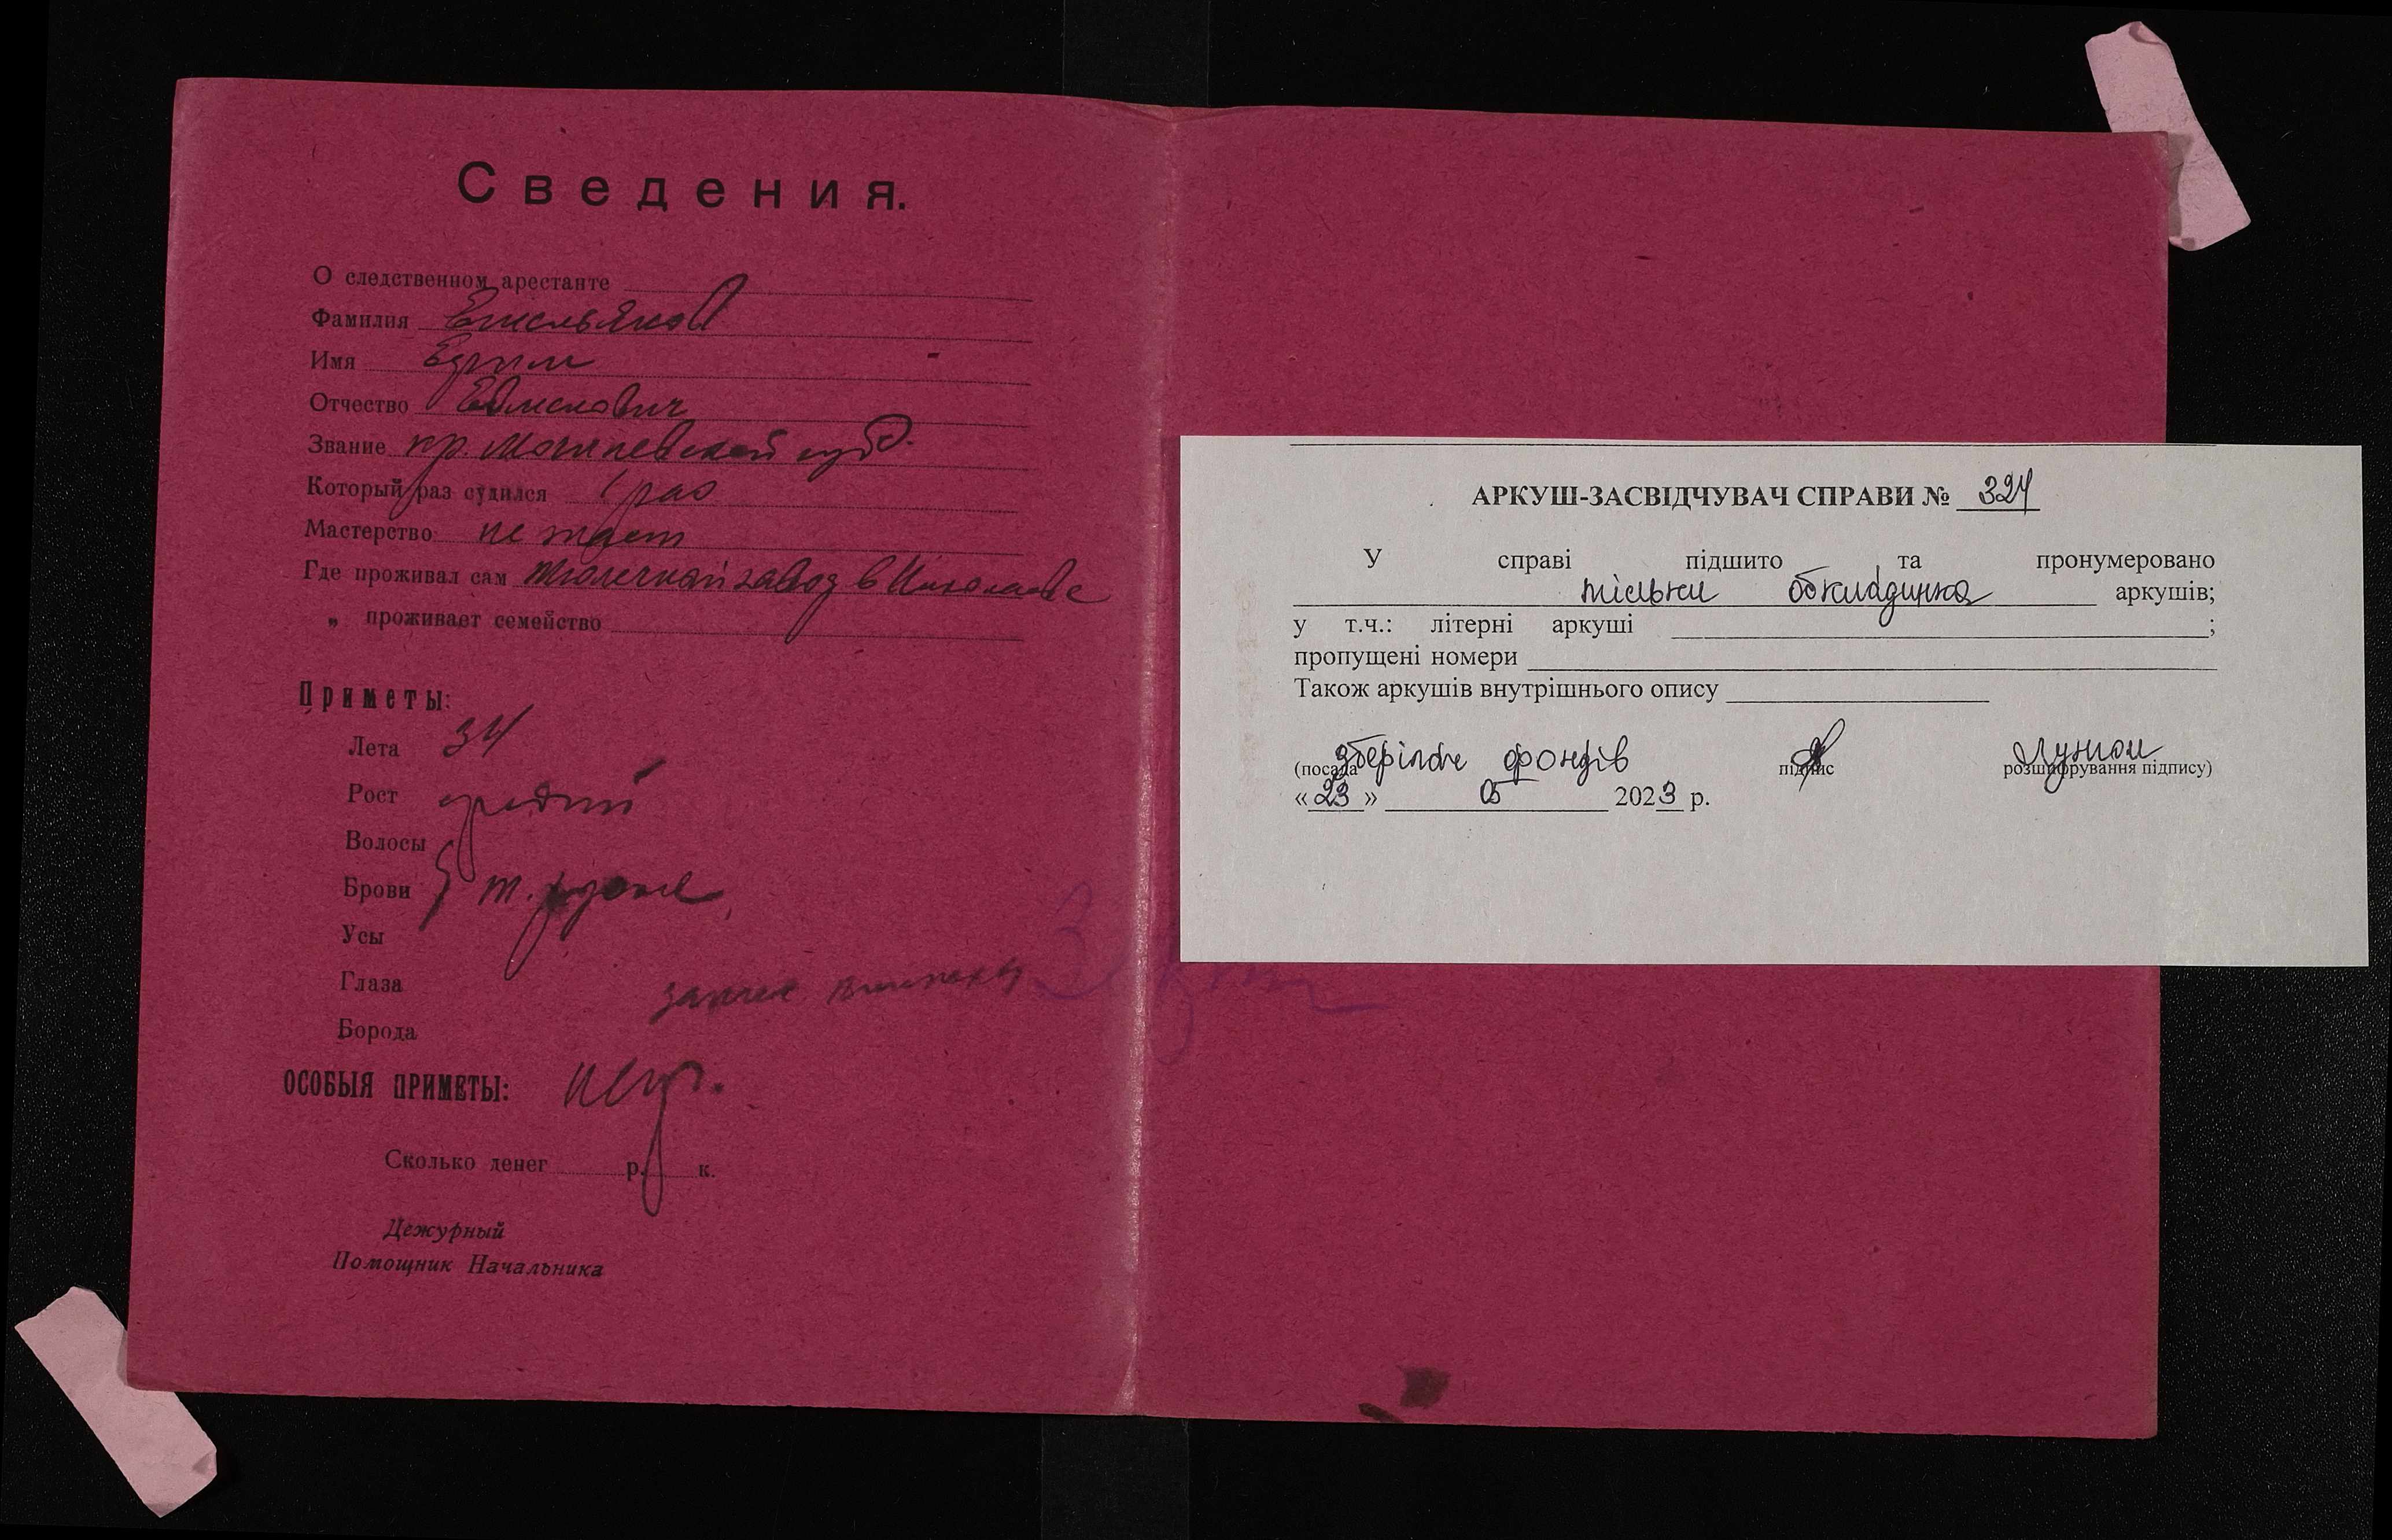 Сведения.
О следственном арестанте
Фамилия Емельянов
Имя Ефим
Отчество
Звание кр. Могилевской губ.
Который раз судился 1 раз
Мастерство не знает
Где проживал сам завод в Николаеве
„ проживает семейство
Приметы:
Лета 34
Рост средний
Волосы
Брови
Усы
Глаза
Борода
ОСОБЫЯ ПРИМЕТЫ: нет.
Сколько денег р. к.
Дежурный
Помощник Начальника
АРКУШ-ЗАСВІДЧУВАЧ СПРАВИ № 324
У справі підшито та пронумеровано
тільки обкладинка аркушів;
у т.ч.: літерні аркуші ;
пропущені номери
Також аркушів внутрішнього опису
зберігач фондів
(посада підпис розшифрування підпису)
«23» 05 2023 р.